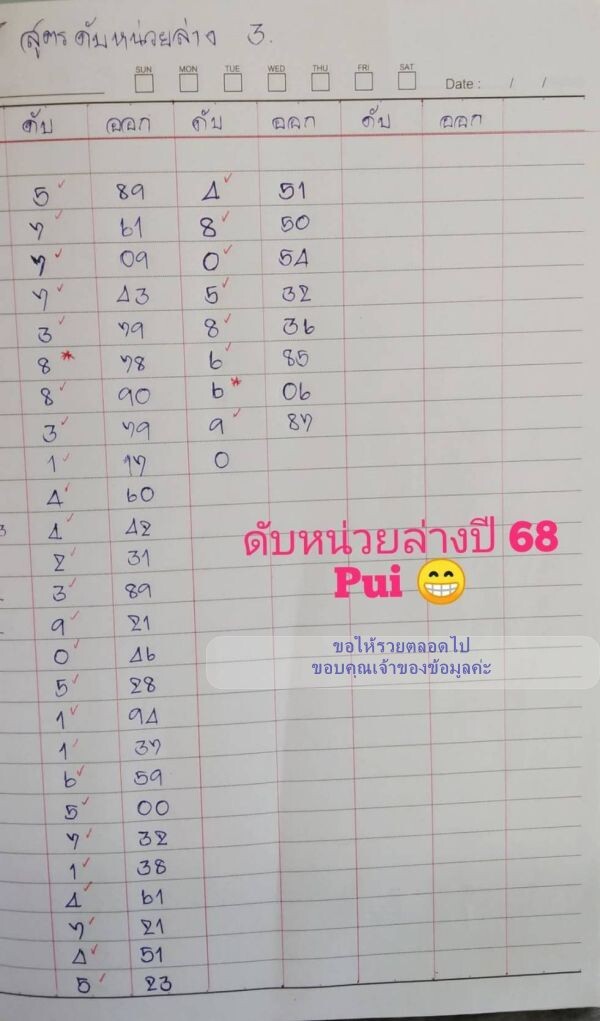 สูตรดับหน่วยล่าง 3.
SUN MON TUE WED THU FRI SAT
Date : / /
ดับ ออก ดับ ออก ดับ ออก
5 89 4 51
7 61 8 50
7 09 0 54
7 43 5 32
3 79 8 36
8 * 78 6 85
8 90 6 * 06
3 79 9 87
1 17 0
4 60
4 42
2 31
3 89
9 21
0 46
5 28
1 94
1 37
6 59
5 00
7 32
1 38
4 61
7 21
4 51
5 23
ดับหน่วยล่างปี 68
Pui 😁
ขอให้รวยตลอดไป
ขอบคุณเจ้าของข้อมูลค่ะ